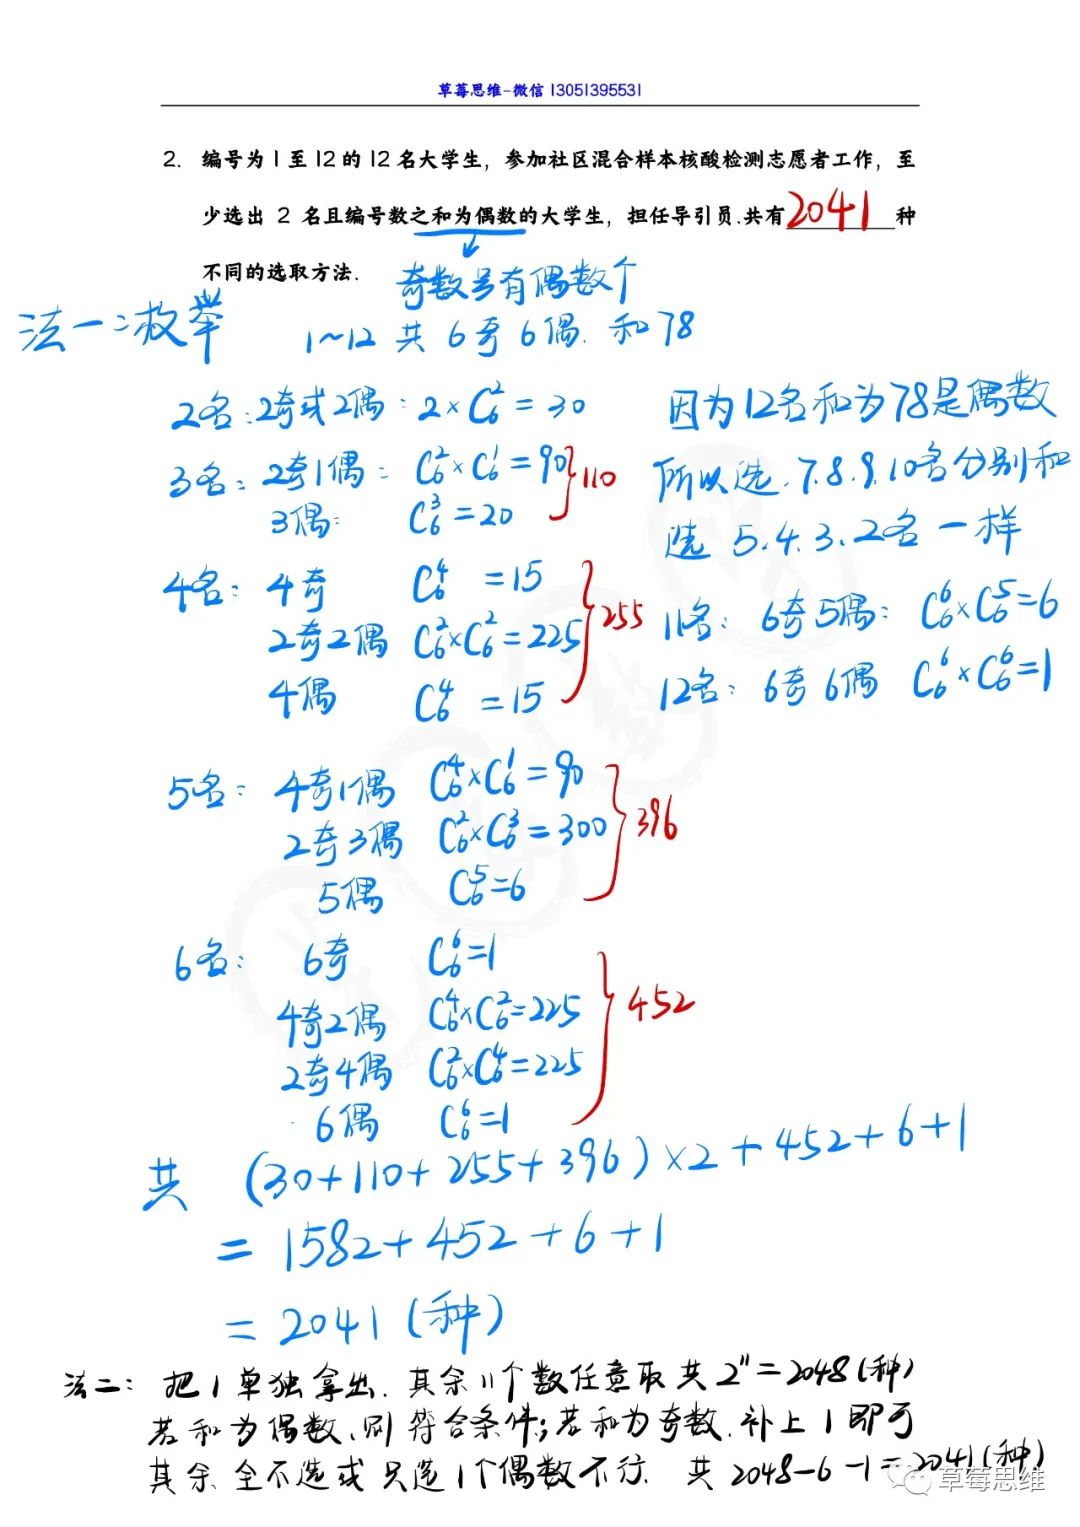 草莓思维-微信 13051395531
2. 编号为 1 至 12 的 12 名大学生，参加社区混合样本核酸检测志愿者工作，至
少选出 2 名且编号数之和为偶数的大学生，担任导引员.共有2041种
不同的选取方法.
奇数号有偶数个
法一:枚举
1~12 共 6奇 6偶. 和78
2名:2奇或2偶:2×C₆²=30
3名:2奇1偶:C₆²×C₆¹=90
3偶:C₆³=20
110
4名:4奇 C₆⁴=15
2奇2偶 C₆²×C₆²=225
4偶 C₆⁴=15
255
因为12名和为78是偶数
所以选.7.8.9.10名分别和
选 5.4.3.2名一样
11名:6奇5偶:C₆⁶×C₆⁵=6
12名:6奇6偶 C₆⁶×C₆⁶=1
5名:4奇1偶 C₆⁴×C₆¹=90
2奇3偶 C₆²×C₆³=300
5偶 C₆⁵=6
396
6名:6奇 C₆⁶=1
4奇2偶 C₆⁴×C₆²=225
2奇4偶 C₆²×C₆⁴=225
6偶 C₆⁶=1
452
共 (30+110+255+396)×2+452+6+1
=1582+452+6+1
=2041(种)
法二:把1单独拿出.其余11个数任意取共2¹¹=2048(种)
若和为偶数,则符合条件;若和为奇数.补上1即可
其余.全不选或只选1个偶数不行. 共2048-6-1=2041(种)
草莓思维